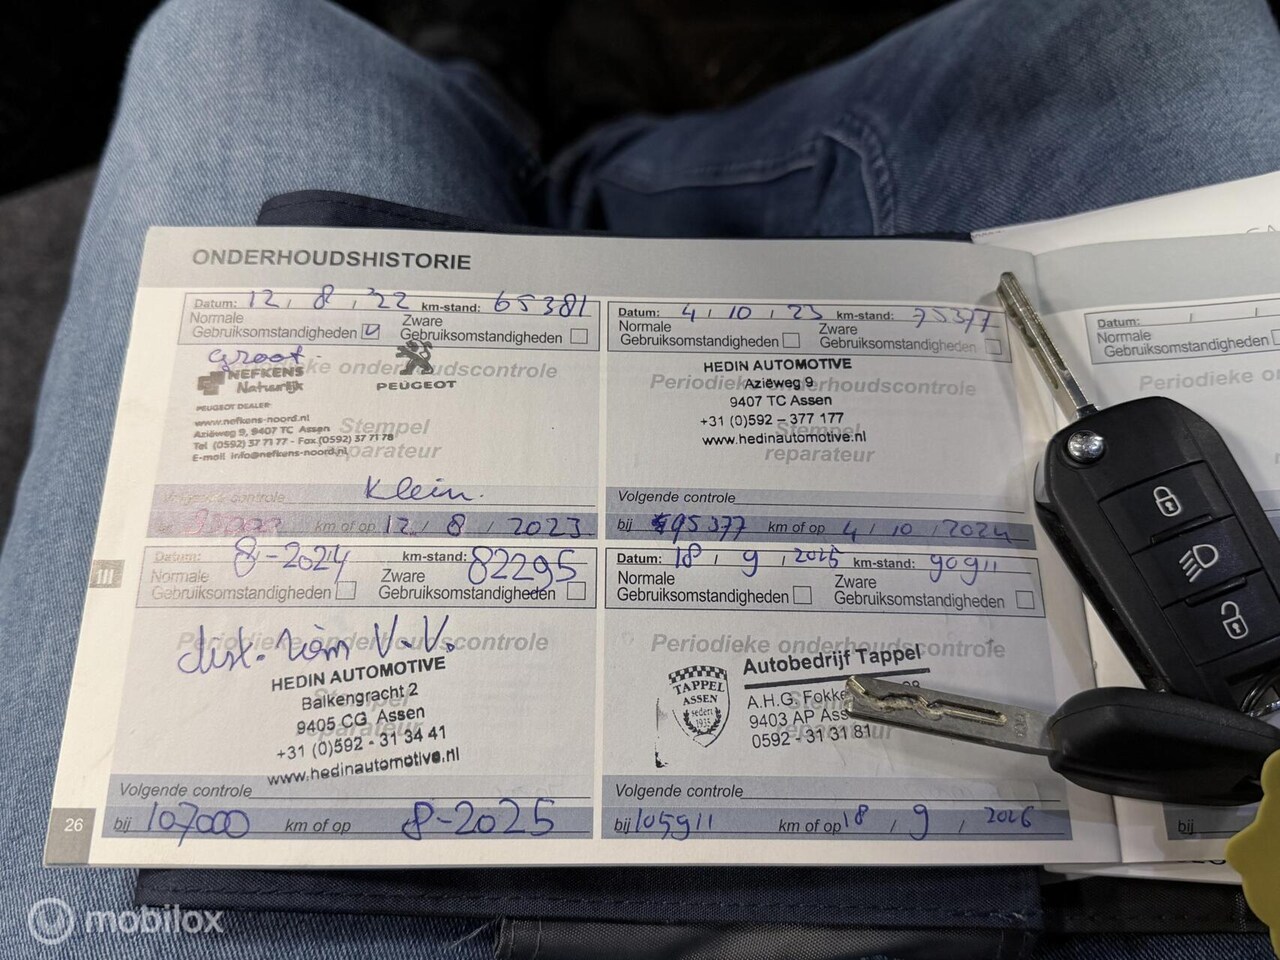 ONDERHOUDSHISTORIE
Datum: 12 / 8 / '22 km-stand: 65381
Normale
Gebruiksomstandigheden
Zware
Gebruiksomstandigheden
groot
NEFKENS
Natuurlijk
PEUGEOT
PEUGEOT DEALER
www.nefkens-noord.nl
Aziëweg 9, 9407 TC Assen
Tel (0592) 37 71 77 - Fax (0592) 37 71 78
E-mail info@nefkens-noord.nl
onderhoudscontrole
Stempel
reparateur
Klein.
Volgende controle
km of op 12 / 8 / 2023
Datum: 4 / 10 / 23 km-stand: 75377
Normale
Gebruiksomstandigheden
Zware
Gebruiksomstandigheden
HEDIN AUTOMOTIVE
Periodieke onderhoudscontrole
Aziëweg 9
9407 TC Assen
+31 (0)592 - 377 177
Stempel
www.hedinautomotive.nl
reparateur
Volgende controle
bij 95377 km of op 4 / 10 / 2024
Datum: 8-2024 km-stand: 82295
Normale
Gebruiksomstandigheden
Zware
Gebruiksomstandigheden
Periodieke onderhoudscontrole
dist. riem V.V.
HEDIN AUTOMOTIVE
Balkengracht 2
9405 CG Assen
+31 (0)592 - 31 34 41
www.hedinautomotive.nl
Volgende controle
bij 107000 km of op 8-2025
Datum: 18 / 9 / 2025 km-stand: 90911
Normale
Gebruiksomstandigheden
Zware
Gebruiksomstandigheden
Periodieke onderhoudscontrole
Autobedrijf Tappel
TAPPEL
ASSEN
sedert
1935
A.H.G. Fokke
9403 AP Ass
0592 - 31 31 81
reparateur
Volgende controle
bij 105911 km of op 18 / 9 / 2026
III
26
Datum: / /
Normale
Gebruiksomstandigheden
Periodieke
bij
mobilox